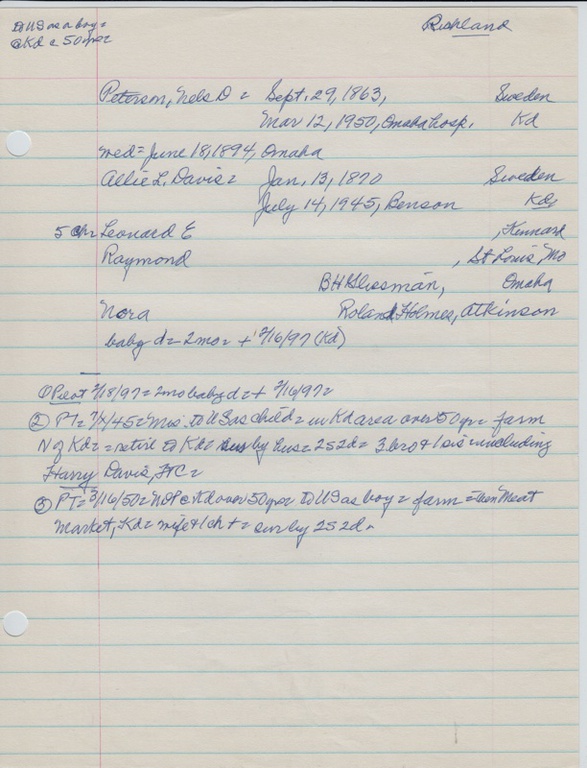 to US as a boy =
@ Kd c 50 yrs =
Richland
Peterson, Nels D = Sept. 29, 1863, Sweden
Mar 12, 1950, Omaha hosp. Kd
wed = June 18, 1894, Omaha
Allie L. Davis = Jan. 13, 1870 Sweden
July 14, 1945, Benson Kd
5 ch Leonard E , Kennard
Raymond , St Louis, Mo
BH Glissman, Omaha
Nora Roland Holmes, Atkinson
baby d = 2 mo = + 2/16/97 (Kd)
① Pilot 2/18/97 = 2 mo baby d = + 2/16/97 =
② PT = 7/ /45 = Mrs. to US as child = in Kd area over 50 yr = farm
N of Kd = = retire to Kd = sur by hus = 2s 2d = 3 bro & 1 sis = including
Harry Davis, FTC =
③ PT = 3/16/50 = NDP @ Kd over 50 yrs = to US as boy = farm = then Meat
Market, Kd = wife & 1 ch + = sur by 2s 2d =